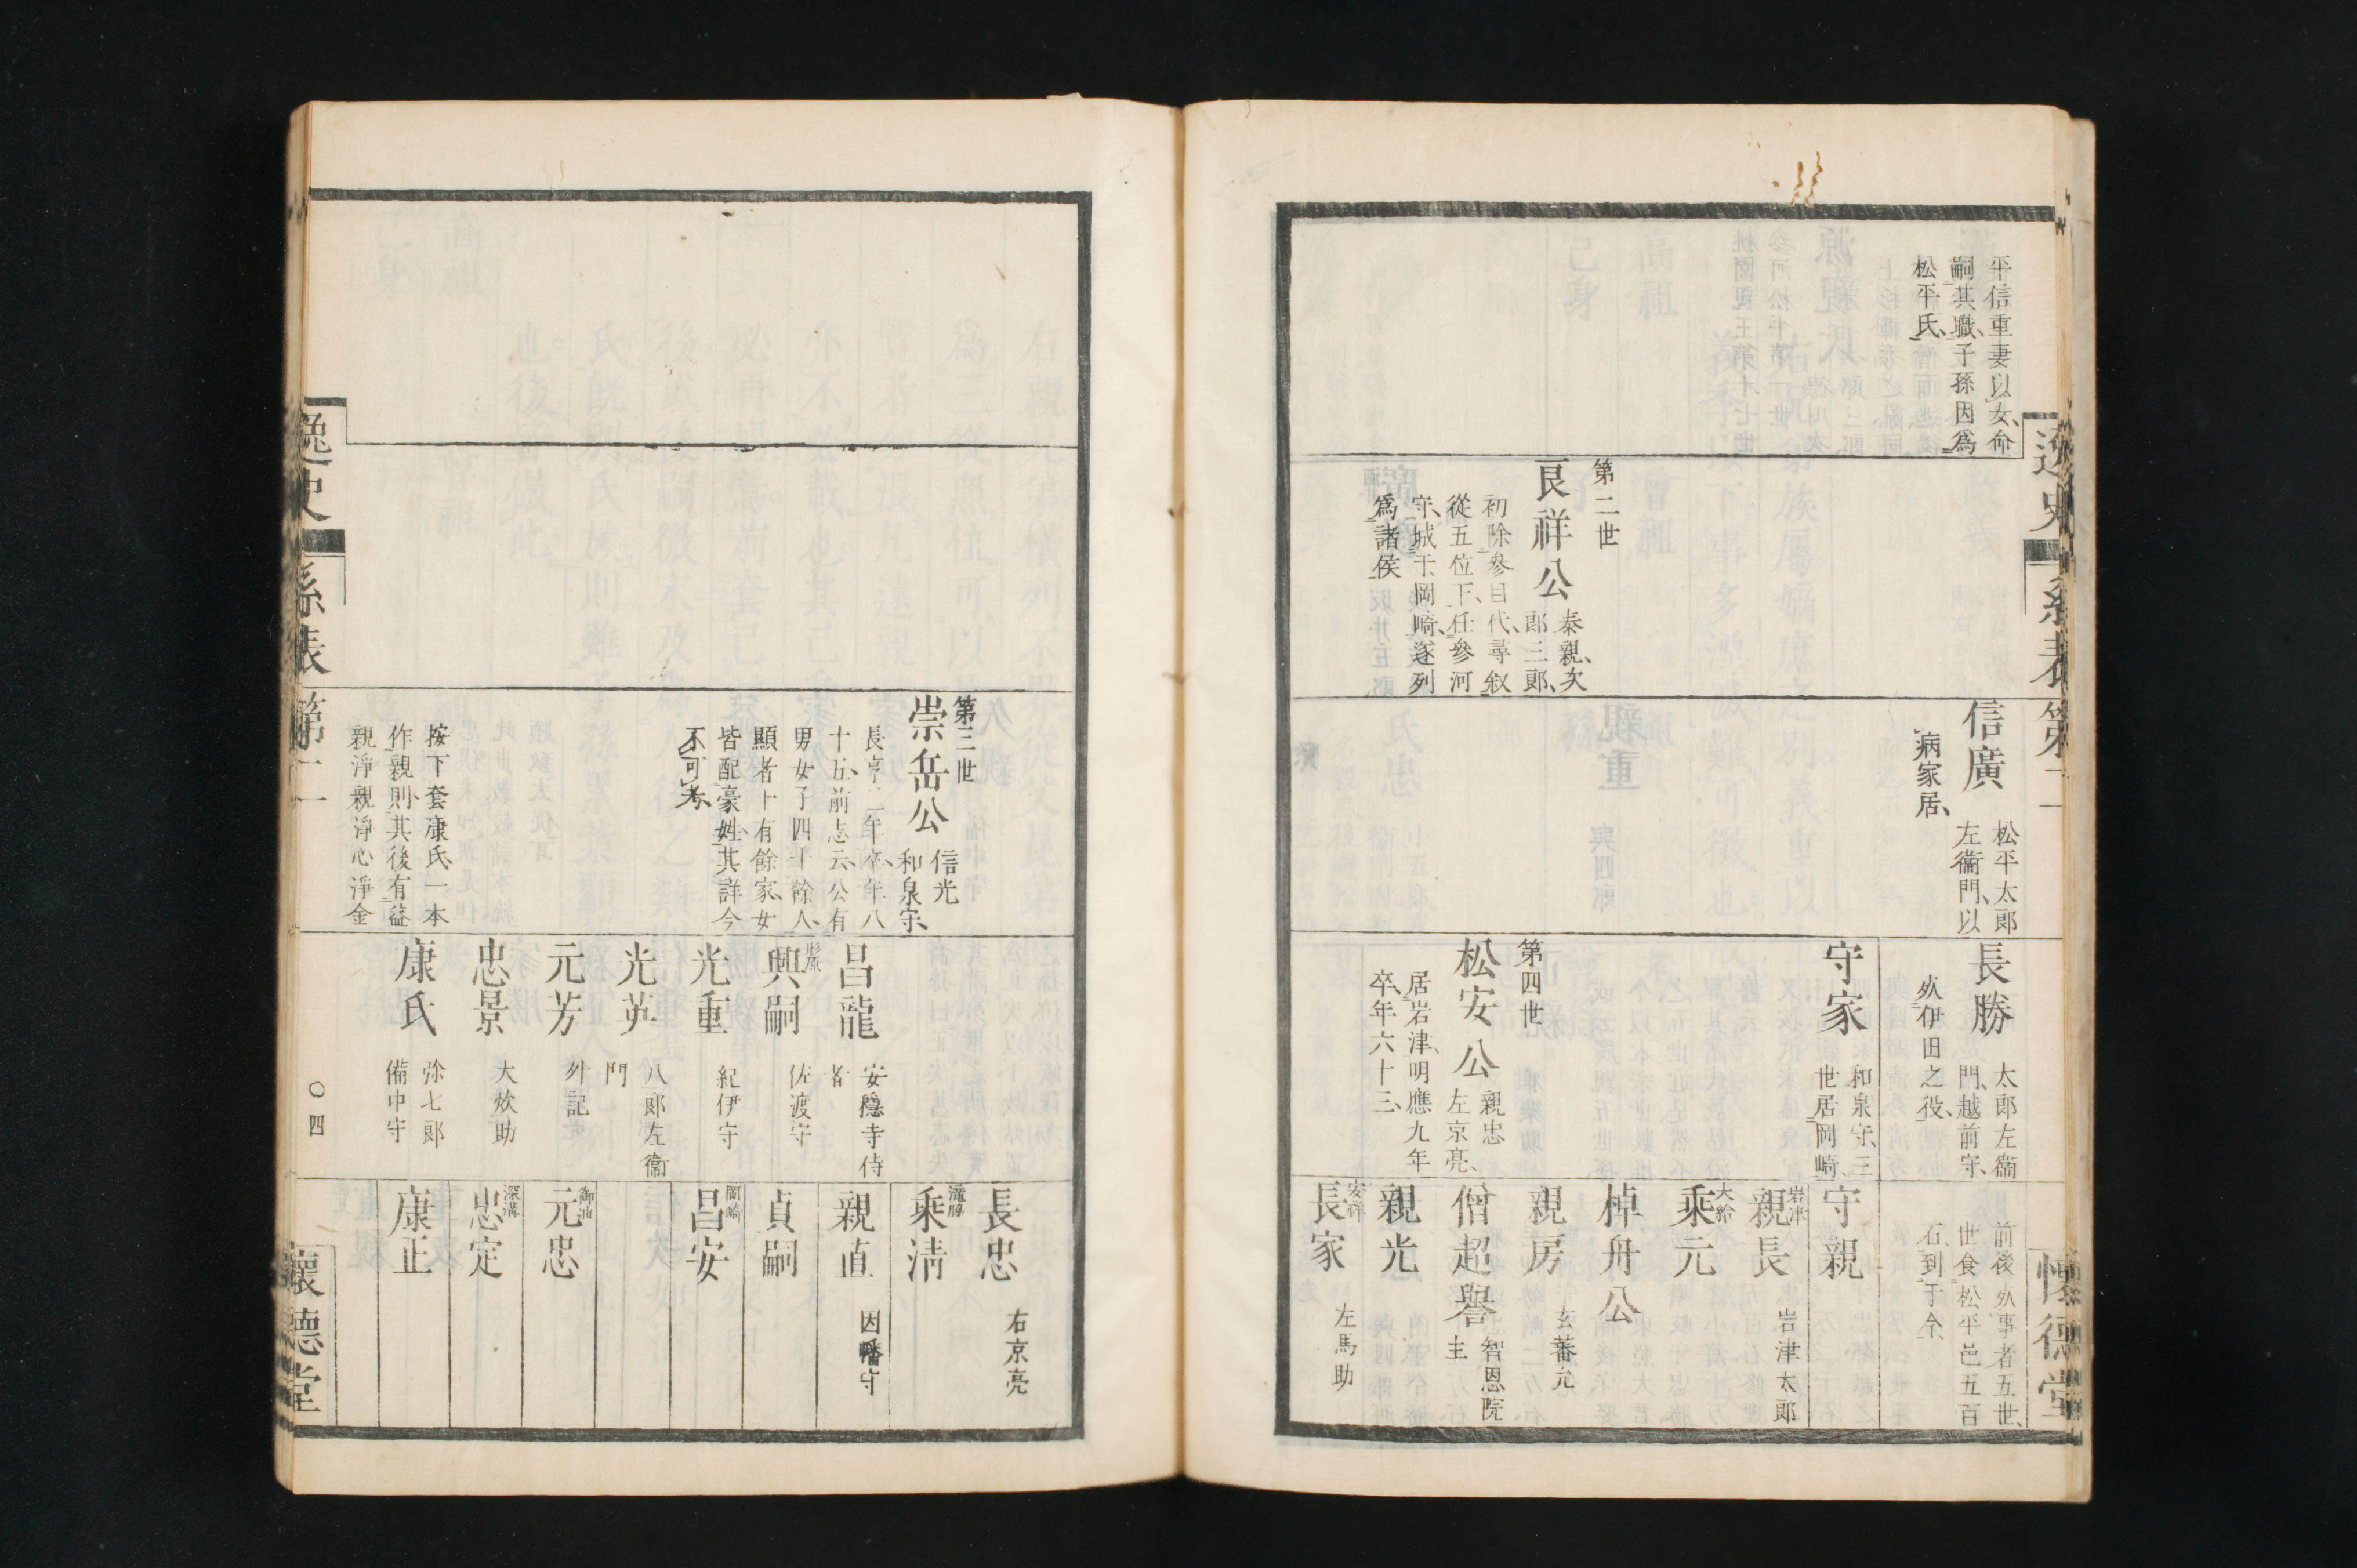 平信重妻以女、命
嗣其職、子孫因爲
松平氏、
第二世
良祥公
泰親、次
郎三郎、
初除參目代、尋叙
從五位下、任參河
守、城于岡崎、遂列
爲諸侯
信廣
松平太郎
左衞門、以
病家居、
長勝
太郎左衞
門、越前守、
死伊田之役、
守家
和泉守、三
世居岡崎、
第四世
松安公
親忠
左京亮、
居岩津、明應九年
卒、年六十三、
前後死事者五世、
世食松平邑五百
石、到于今、
守親
岩津
親長
岩津太郎
大給
乘元
棹舟公
親房
玄蕃允
僧超譽
智恩院
主
親光
安祥
長家
左馬助
逸史
系表
第二
懷德堂
第三世
崇岳公
信光
和泉守、
長亨二年卒、年八
十五、前志云、公有
男女子四十餘人、
顯者十有餘家、女
皆配豪姓、其詳今
不可考、
按下套康氏、一本
作親則、其後有益
親淨親淨心淨金
昌龍
安穩寺侍
者
形原
興嗣
佐渡守
光重
紀伊守
光英
八郎左衞
門
元芳
外記
忠景
大炊助
康氏
弥七郎
備中守
長忠
右京亮
瀧脇
乘淸
親直
因幡守
貞嗣
岡崎
昌安
元忠
深溝
忠定
康正
逸史
系表
第二
〇四
懷德堂